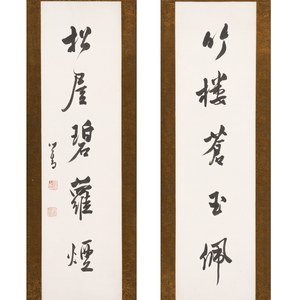 竹樓蒼玉佩
松屋碧蘿煙
溥儒